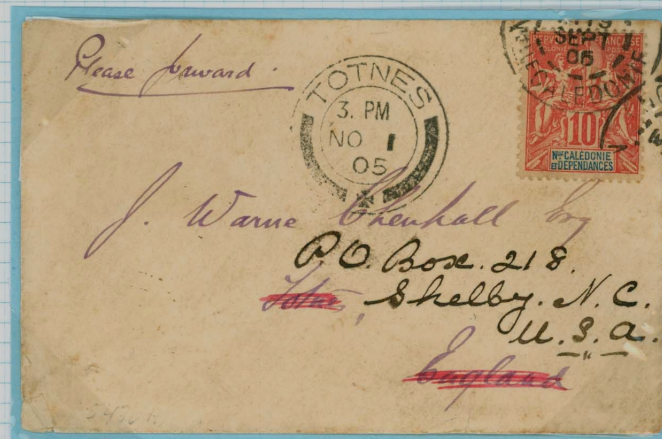 Please forward.
TOTNES
3. PM
NO 1
05
SEPT
05
CALEDONIE
10
Nlle CALÉDONIE
ET DÉPENDANCES
J. Warne Chenhall Esq
P.O. Box. 218.
Shelby. N. C.
U. S. A.
England